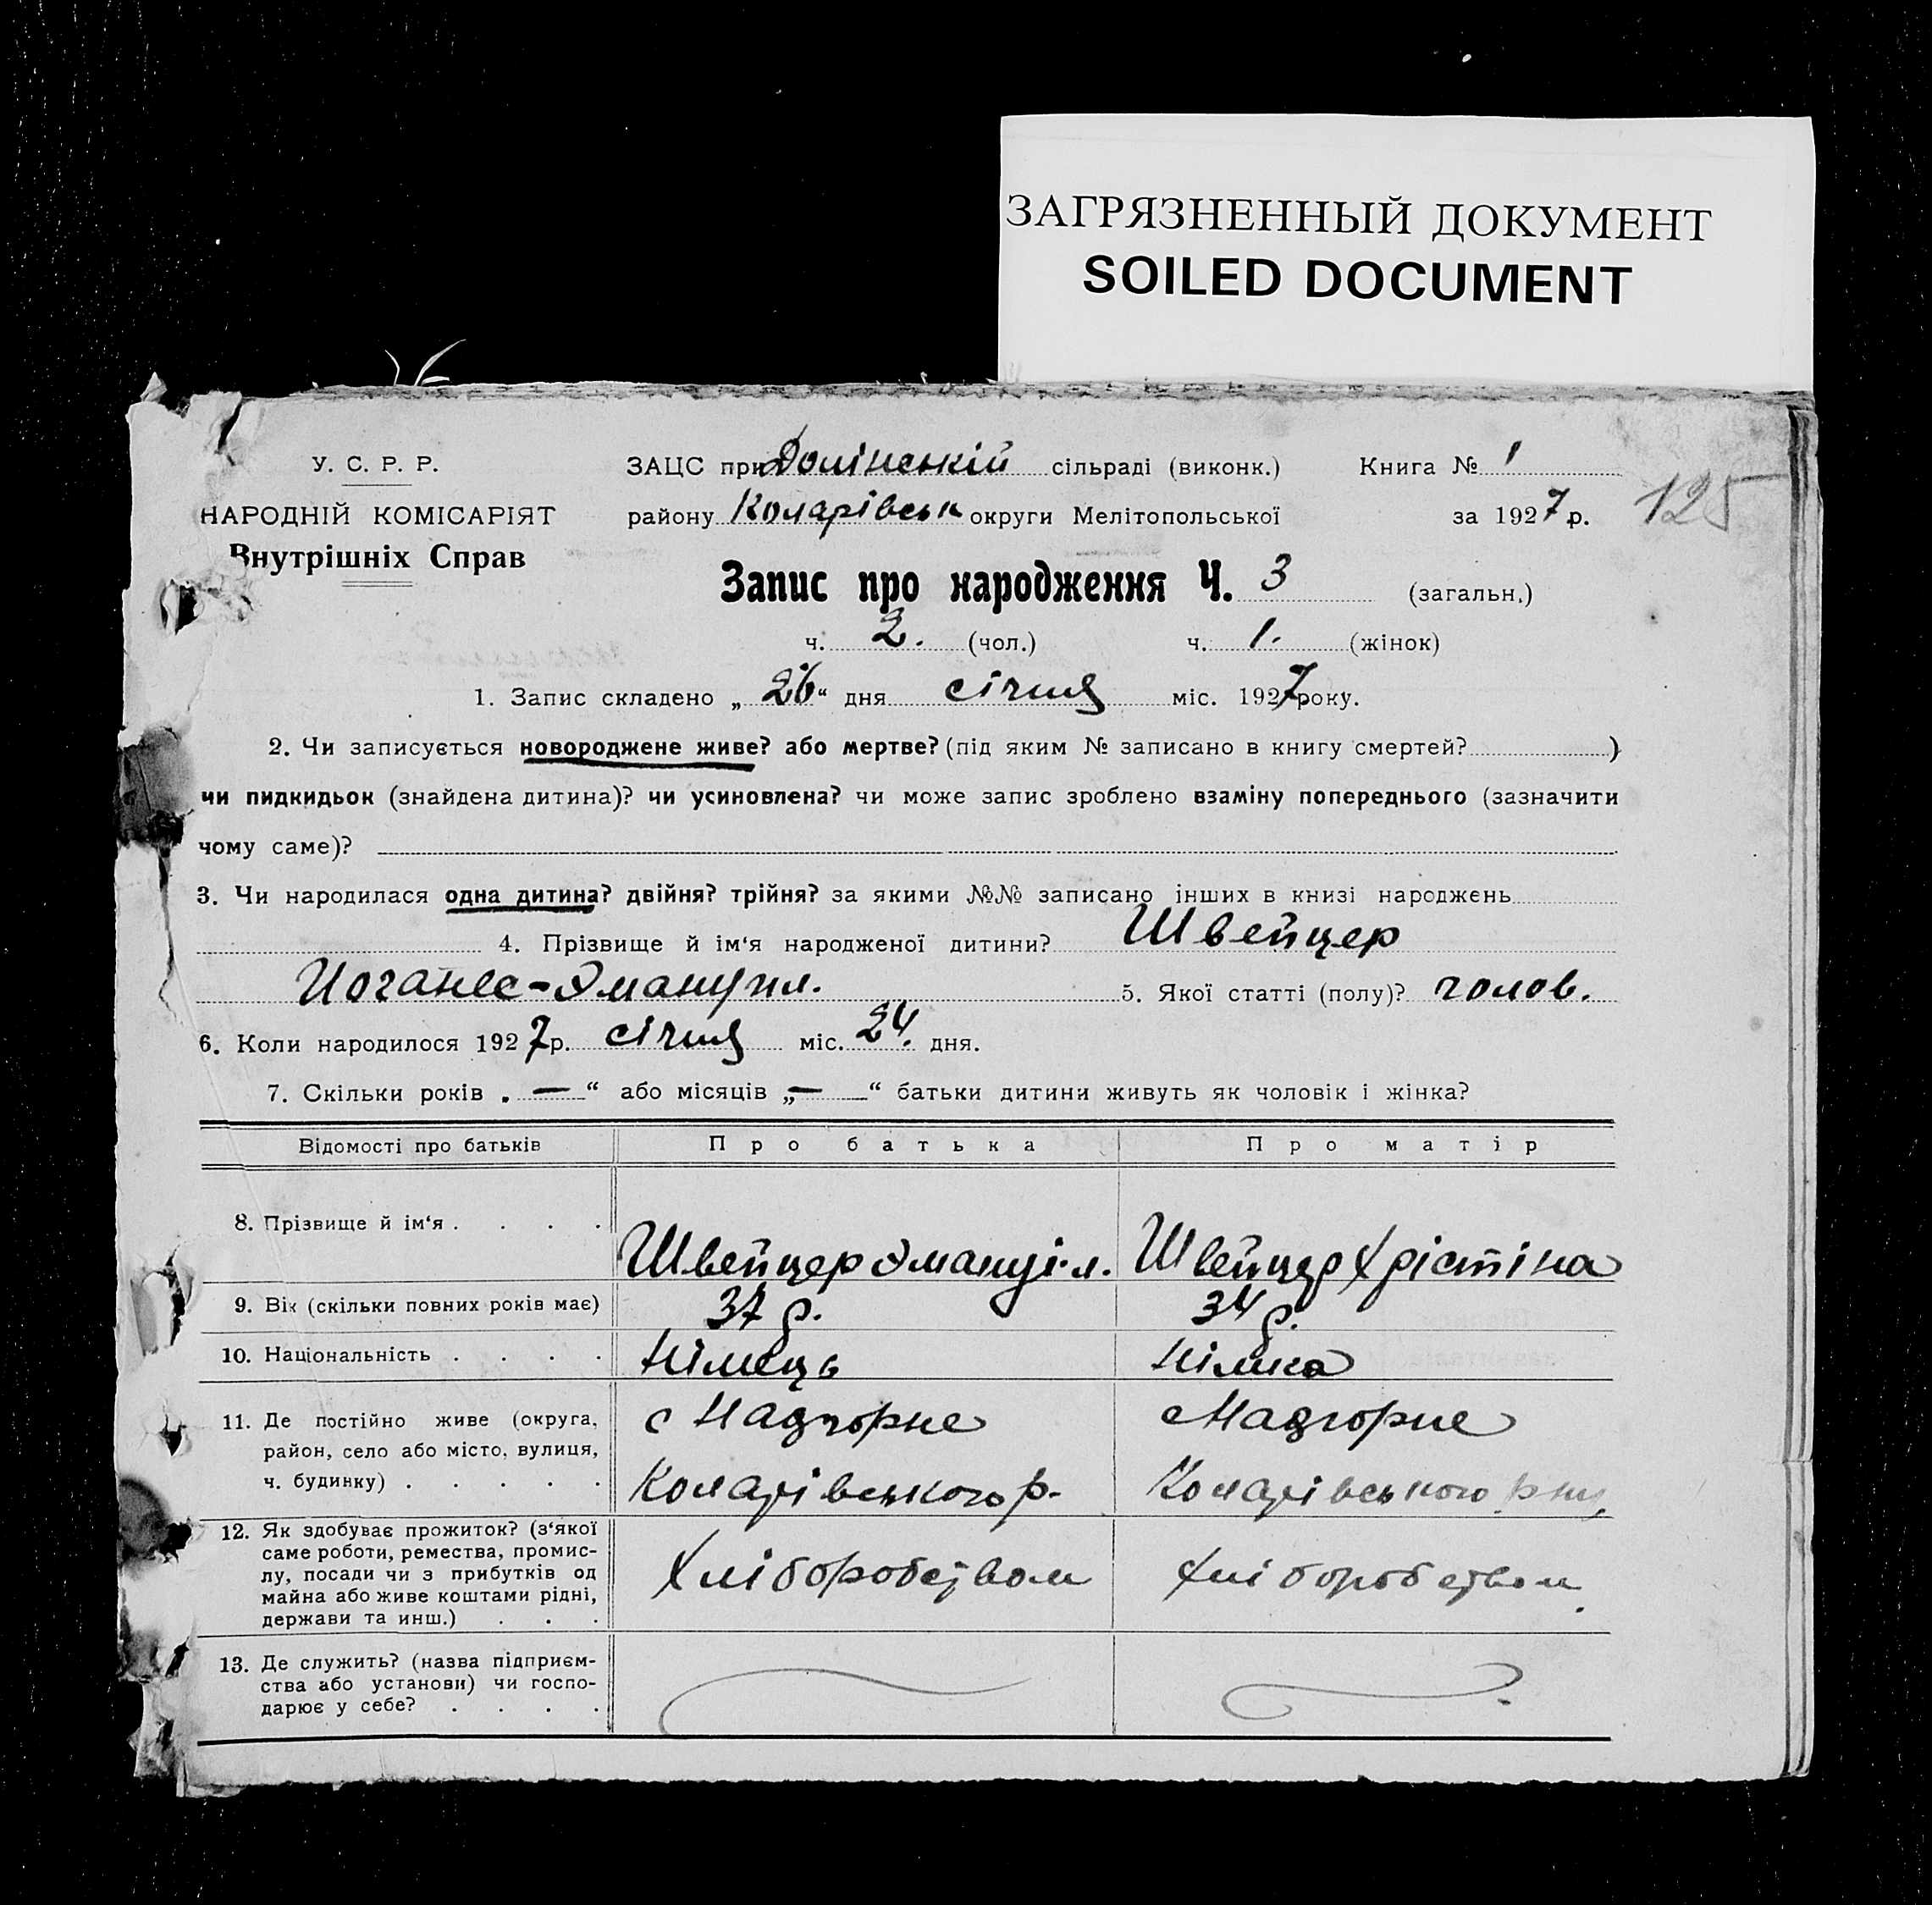 ЗАГРЯЗНЕННЫЙ ДОКУМЕНТ
SOILED DOCUMENT
У. С. Р. Р.
НАРОДНІЙ КОМІСАРІЯТ
Внутрішніх Справ
ЗАЦС при Долінській сільраді (виконк.) Книга № 1
району Коларівськ округи Мелітопольської за 1927 р.
125
Запис про народження Ч. 3 (загальн.)
ч. 2. (чол.) ч. 1. (жінок)
1. Запис складено „ 26 “ дня січня міс. 1927 року.
2. Чи записується новороджене живе? або мертве? (під яким № записано в книгу смертей? )
чи пидкидьок (знайдена дитина)? чи усиновлена? чи може запис зроблено взаміну попереднього (зазначити
чому саме)?
3. Чи народилася одна дитина? двійня? трійня? за якими №№ записано інших в книзі народжень
4. Прізвище й ім‘я народженої дитини? Швейцер
Иоганес-Эмануил. 5. Якої статті (полу)? чолов.
6. Коли народилося 1927 р. січня міс. 24. дня.
7. Скільки років „ — “ або місяців „ — “ батьки дитини живуть як чоловік і жінка?
Відомості про батьків Про батька Про матір
8. Прізвище й ім‘я . . . . Швейцер Эмануіл. Швейцер Хрістіна
9. Вік (скільки повних років має) 37 р. 34 р.
10. Національність . . . . Німець Німка
11. Де постійно живе (округа, с Надгорне с Надгорне
район, село або місто, вулиця,
ч. будинку) . . . . . Коларівського р. Коларівського р-ну,
12. Як здобуває прожиток? (з‘якої
саме роботи, ремества, промис-
лу, посади чи з прибутків од Хліборобством Хліборобством.
майна або живе коштами рідні,
держави та инш.) . . .
13. Де служить? (назва підприєм-
ства або установи) чи госпо-
дарює у себе? . . . .